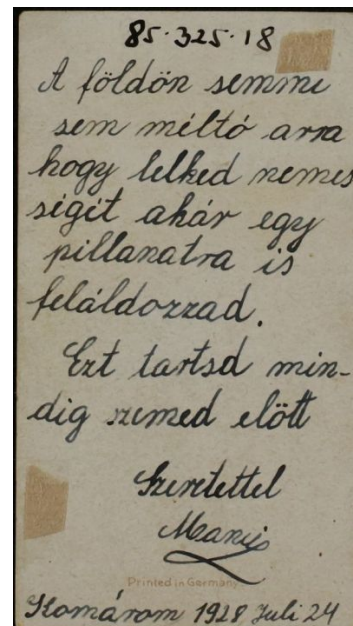 85.325.18
A földön semmi
sem méltó arra
hogy lelked nemes
ségit akár egy
pillanatra is
feláldozzad.
Ezt tartsd min-
dig szemed elött
Szeretettel
Manci
Printed in Germany
Komárom 1928 Juli 24